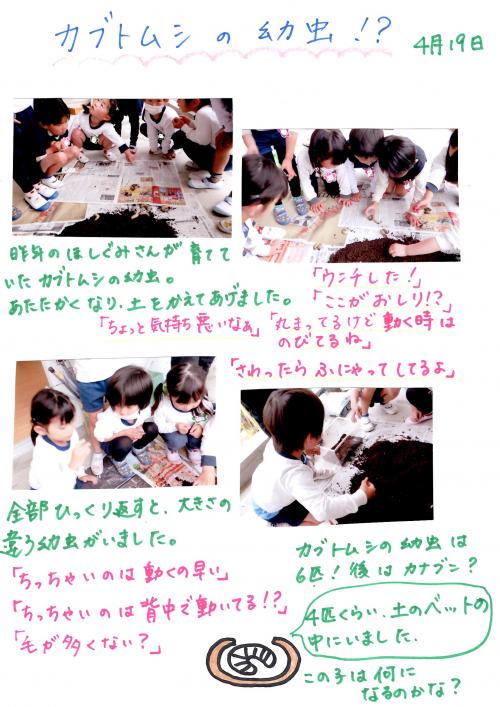 カブトムシの幼虫!?
4月19日
昨年のほしぐみさんが育てて
いたカブトムシの幼虫。
あたたかくなり、土をかえてあげました。
「ウンチした!」
「ここがおしり!?」
「ちょっと気持ち悪いなぁ」
「丸まってるけど動く時は
のびてるね」
「さわったらふにゃってしてるよ」
全部ひっくり返すと、大きさの
違う幼虫がいました。
「ちっちゃいのは動くの早い」
「ちっちゃいのは背中で動いてる!?」
「毛が多くない?」
カブトムシの幼虫は
6匹!後はカナブン?
4匹くらい、土のベットの
中にいました。
この子は何に
なるのかな?